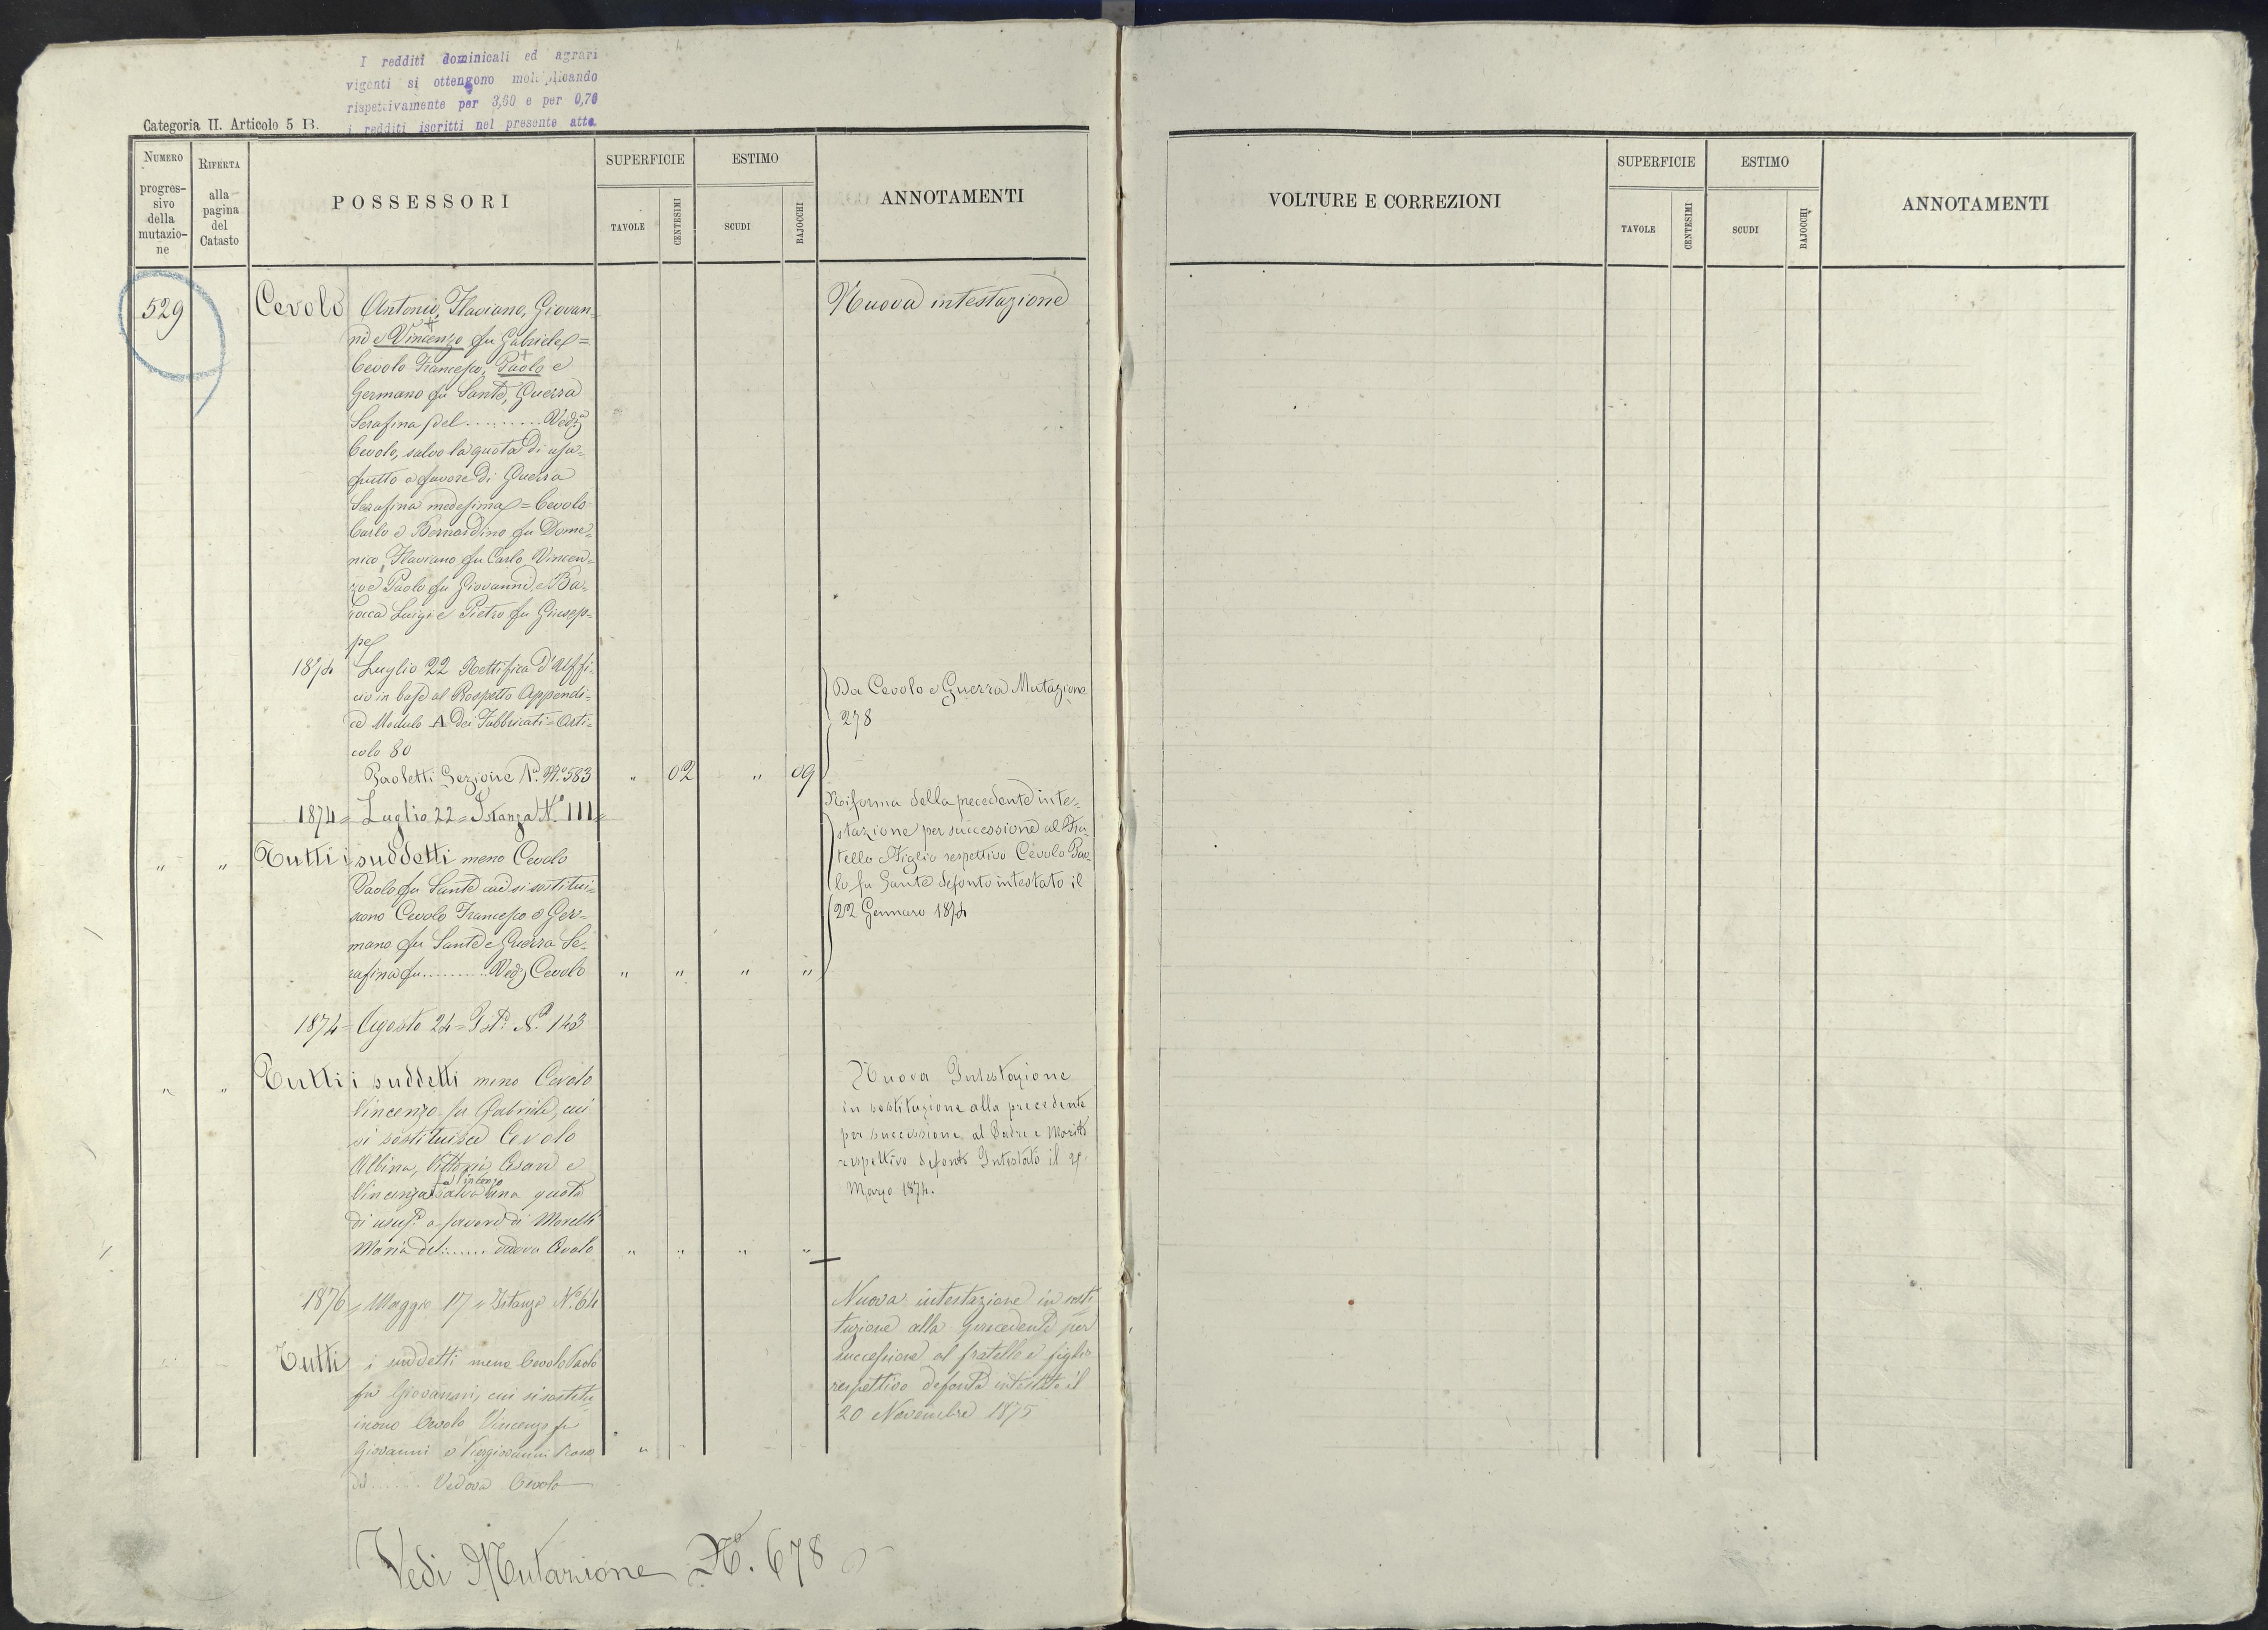 I redditi dominicali ed agrari
vigenti si ottengono moltiplicando
rispettivamente per 3,60 e per 0,70
i redditi iscritti nel presente atto.
Categoria II. Articolo 5 B.
NUMERO
progres-
sivo
della
mutazio-
ne
RIFERTA
alla
pagina
del
Catasto
POSSESSORI
SUPERFICIE
TAVOLE
CENTESIMI
ESTIMO
SCUDI
BAJOCCHI
ANNOTAMENTI
529
Cevolo Antonio, Flaviano, Giovan-
ni e Vincenzo fu Gabriele =
Cevolo Francesco, Paolo e
Germano fu Sante, Guerra
Serafina del ......... Ved.a
Cevolo, salvo la quota di usu-
frutto a favore di Guerra
Serafina medesima = Cevolo
Carlo e Bernardino fu Dome-
nico, Flaviano fu Carlo, Vincen-
zo e Paolo fu Giovanni, e
Luigi e Pietro fu Giusep-
pe
Nuova intestazione
1874 Luglio 22 Rettifica d'Uffi-
cio in base al Prospetto Appendi-
ce Modulo A dei Fabbricati = Arti-
colo 80
Paoletti Sezione 1a. No. 583 " 02 " 09
Da Cevolo e Guerra Mutazione
278
1874 = Luglio 22 = Istanza No. 111 =
" " Tutti i suddetti meno Cevolo
Paolo fu Sante cui si sostitui-
scono Cevolo Francesco e Ger-
mano fu Sante e Guerra Se-
rafina fu ......... Ved.a Cevolo " " " "
Riforma della precedente inte-
stazione per successione al Fra-
tello e Figlio respettivo Cevolo Pao-
lo fu Sante defonto intestato il
22 Gennaro 1874
1874 = Agosto 24 = Ist.a No. 143
" " Tutti i suddetti meno Cevolo
Vincenzo fu Gabriele, cui
si sostituisce Cevolo
Albina, Vittoria, Cesare e
fu Vincenzo
Vincenza salvo una quota
di usuf.o a favore di Morelli
Maria del ...... vedova Cevolo " " " "
Nuova Intestazione
in sostituzione alla precedente
per successione al Padre e Marito
respettivo defonto Intestato il
Marzo 1874.
1876 = Maggio 17 = Istanza No. 64
Tutti i suddetti meno Cevolo Paolo
fu Giovanni, cui si sostitu
iscono Cevolo Vincenzo fu
Giovanni e Piergiovanni Rosa "
del ...... Vedova Cevolo
Nuova intestazione in sosti
tuzione alla precedente per
successione al fratello e figlio
respettivo defonto intestato il
20 Novembre 1875
Vedi Mutazione No. 678
VOLTURE E CORREZIONI
SUPERFICIE
TAVOLE
CENTESIMI
ESTIMO
SCUDI
BAJOCCHI
ANNOTAMENTI